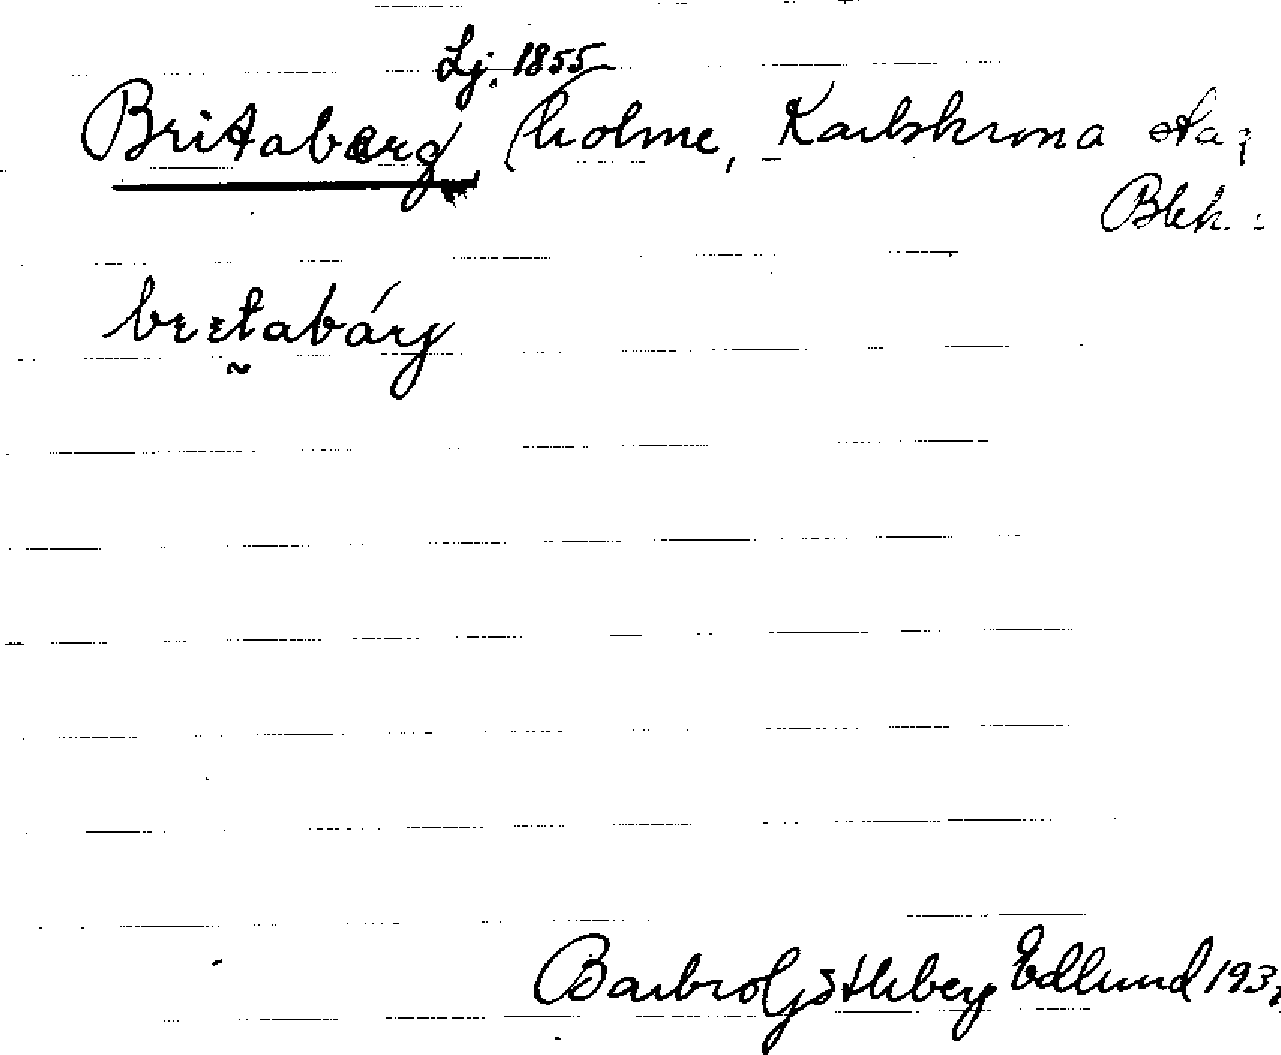 Lj. 1855
Britaberg (holme, Karlskrona sta
Blek.
bretabárg
Barbro Edlund 193